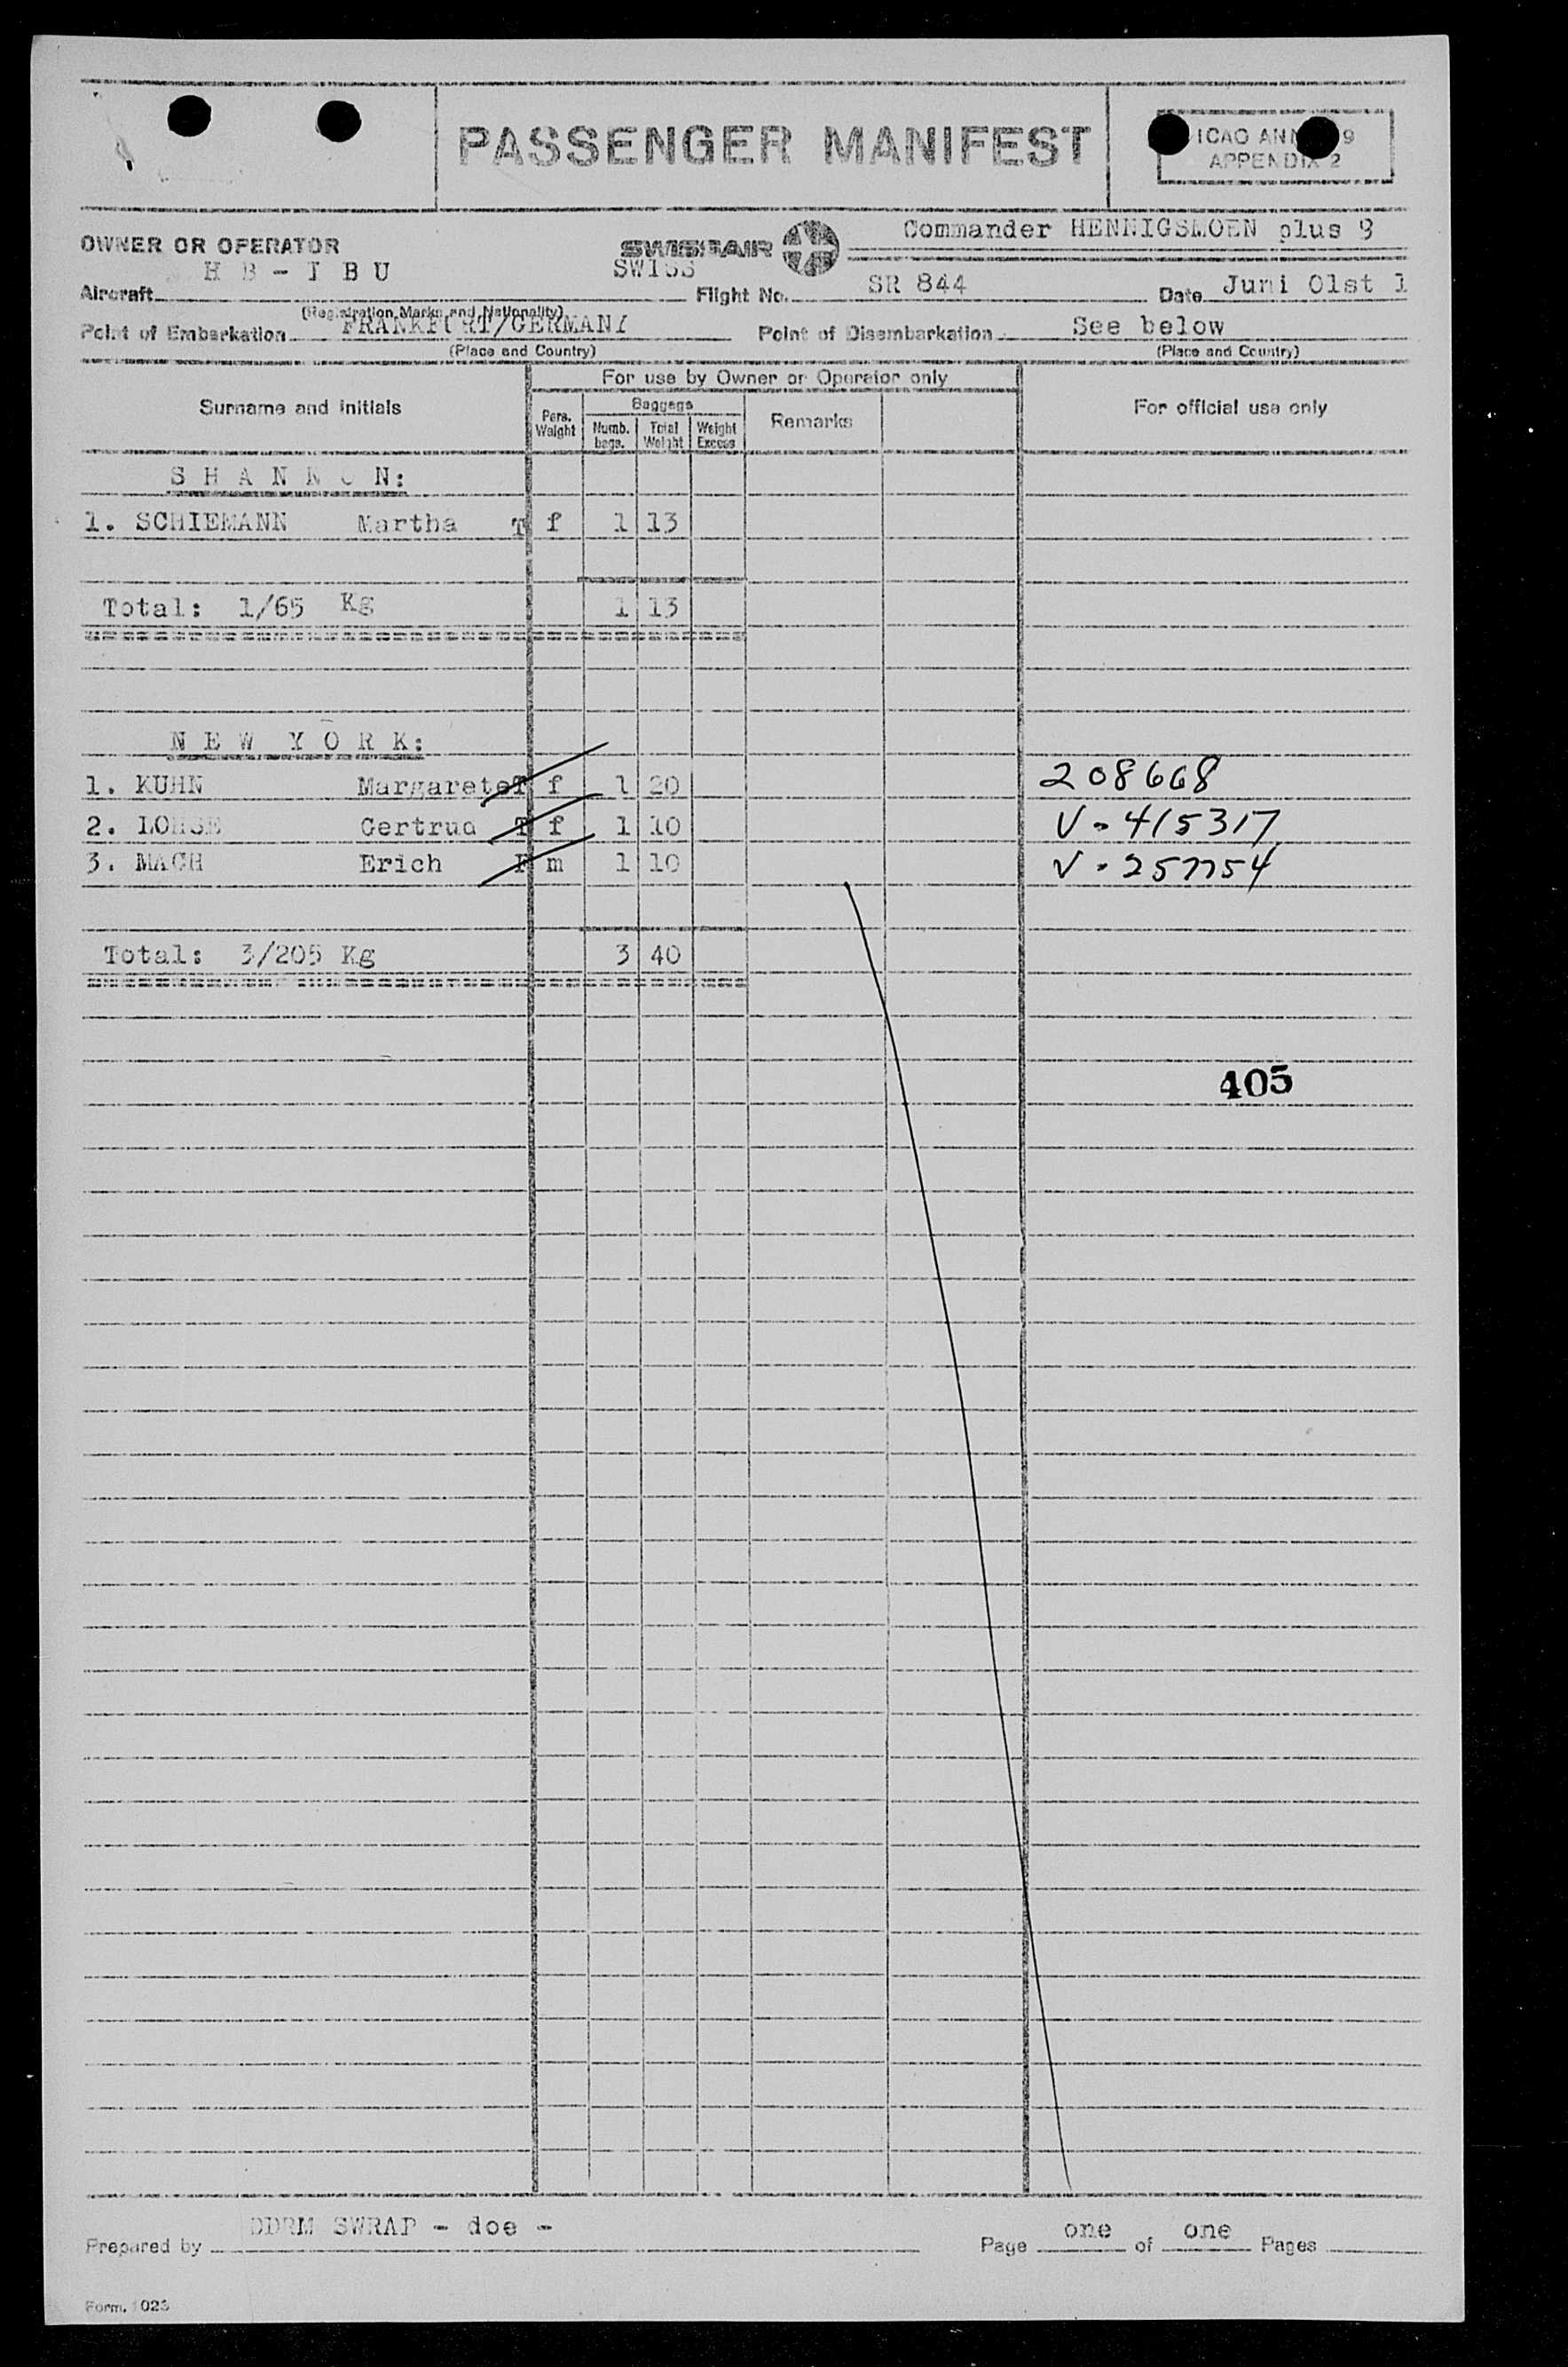 PASSENGER MANIFEST
ICAO ANN 9
APPENDIX 2
OWNER OR OPERATOR
SWISSAIR
Commander HENNIGSMOEN plus 9
Aircraft H B - I B U SWISS Flight No. SR 844 Date Juni 01st 1
(Registration Marks and Nationality)
Point of Embarkation FRANKFURT/GERMANY Point of Disembarkation See below
(Place and Country) (Place and Country)
For use by Owner or Operator only
Surname and initials Pers. Weight Baggage Numb. bags. Total Weight Weight Excess Remarks For official use only
S H A N N O N:
1. SCHIEMANN Martha T f 1 13
Total: 1/65 Kg 1 13
N E W Y O R K:
1. KUHN Margarete T f 1 20 208668
2. LOHSE Gertrud T f 1 10 V-415317
3. MACH Erich m 1 10 V-257754
Total: 3/205 Kg 3 40
405
Prepared by DDRM SWRAP - doe - Page one of one Pages
Form. 1023